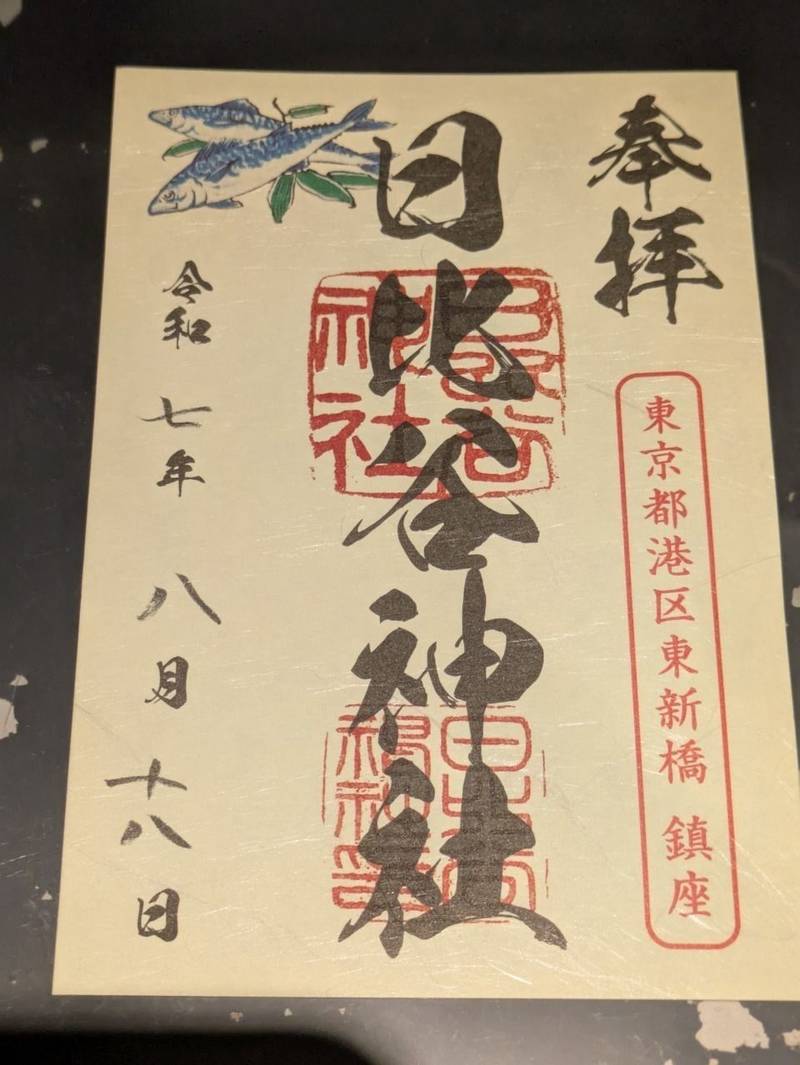 奉拝
東京都港区東新橋 鎮座
日比谷神社
令和七年八月十八日